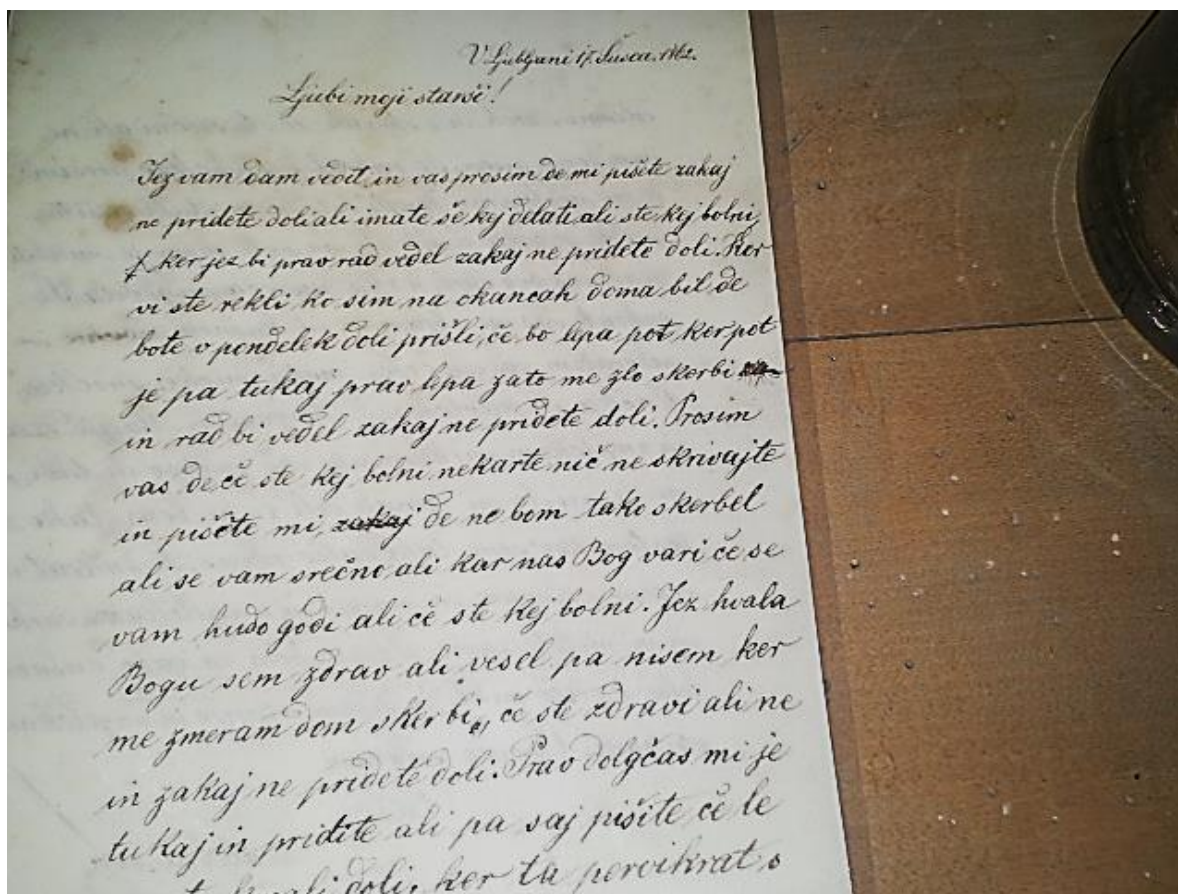 V Ljubljani 17. Sušca. 1862.
Ljubi moji starši!
Jez vam dam vedit, in vas prosim de mi pišete zakaj
ne pridete doli ali imate še kej delati ali ste kej bolni,
ker jez bi prav rad vedel zakaj ne pridete doli. Ker
vi ste rekli ko sim na okancah doma bil de
bote v pondelek doli prišli, če bo lipa pot ker pot
je pa tukaj prav lpa zato me zlo skerbi
in rad bi vedel zakaj ne pridete doli. Prosim
vas de če ste kej bolni nekarte nič ne skrivajte
in pišite mi, zakaj de ne bom tako skerbel
ali se vam srečno ali kar nas Bog vari če se
vam hudo godi ali če ste kej bolni. Jez hvala
Bogu sem zdrav ali vesel pa nisem ker
me zmeram dom skerbi, če ste zdravi ali ne
in zakaj ne pridete doli. Prav dolgčas mi je
tukaj in pridite ali pa saj pišite če le
ali doli, ker ta pervikrat